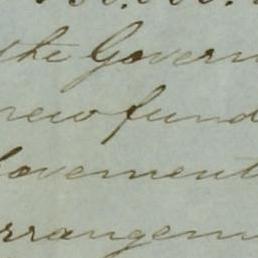 the Govern
new fund
lovement
rrangem